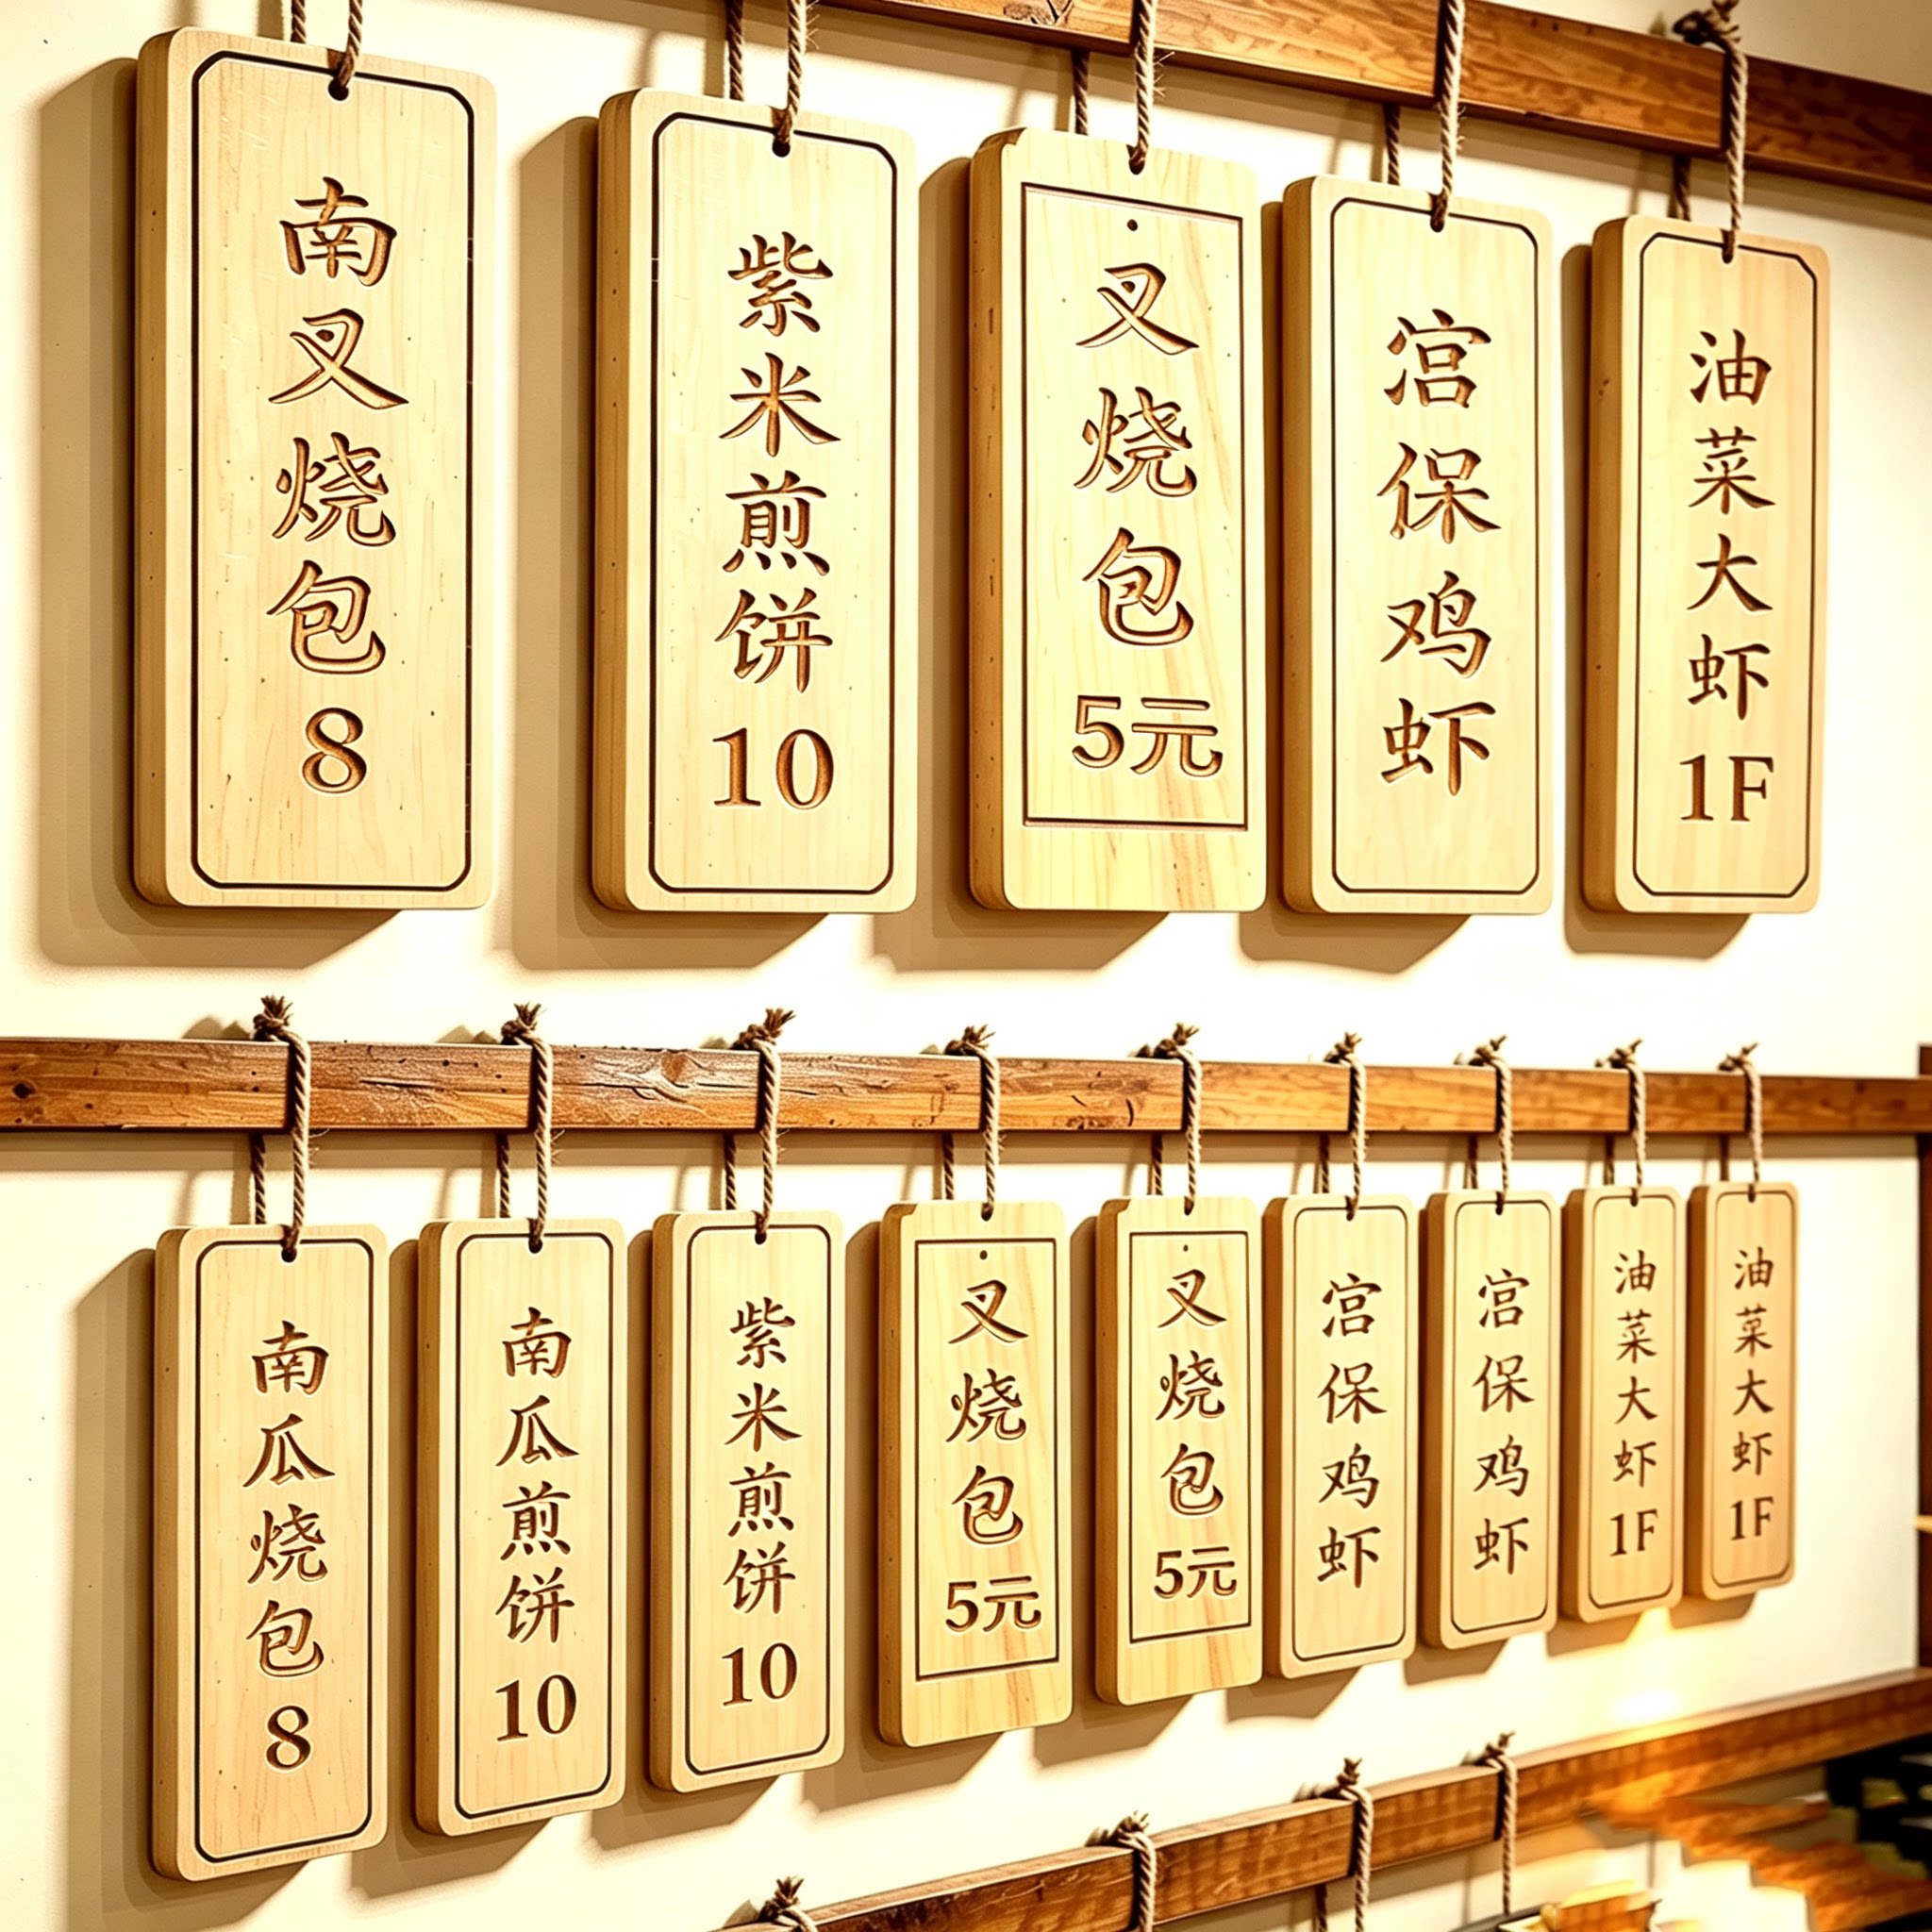 南叉烧包
8
紫米煎饼
10
叉烧包
5元
宫保鸡虾
油菜大虾
1F
南瓜烧包
8
南瓜煎饼
10
紫米煎饼
10
叉烧包
5元
叉烧包
5元
宫保鸡虾
宫保鸡虾
油菜大虾
1F
油菜大虾
1F